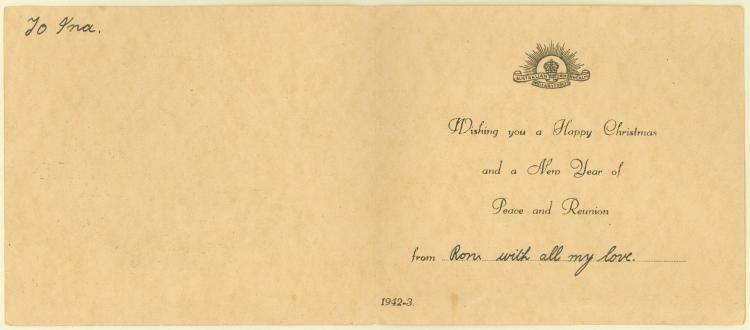 To Ina.
AUSTRALIAN COMMONWEALTH
MILITARY FORCES
Wishing you a Happy Christmas
and a New Year of
Peace and Reunion
from Ron, with all my love.
1942-3.